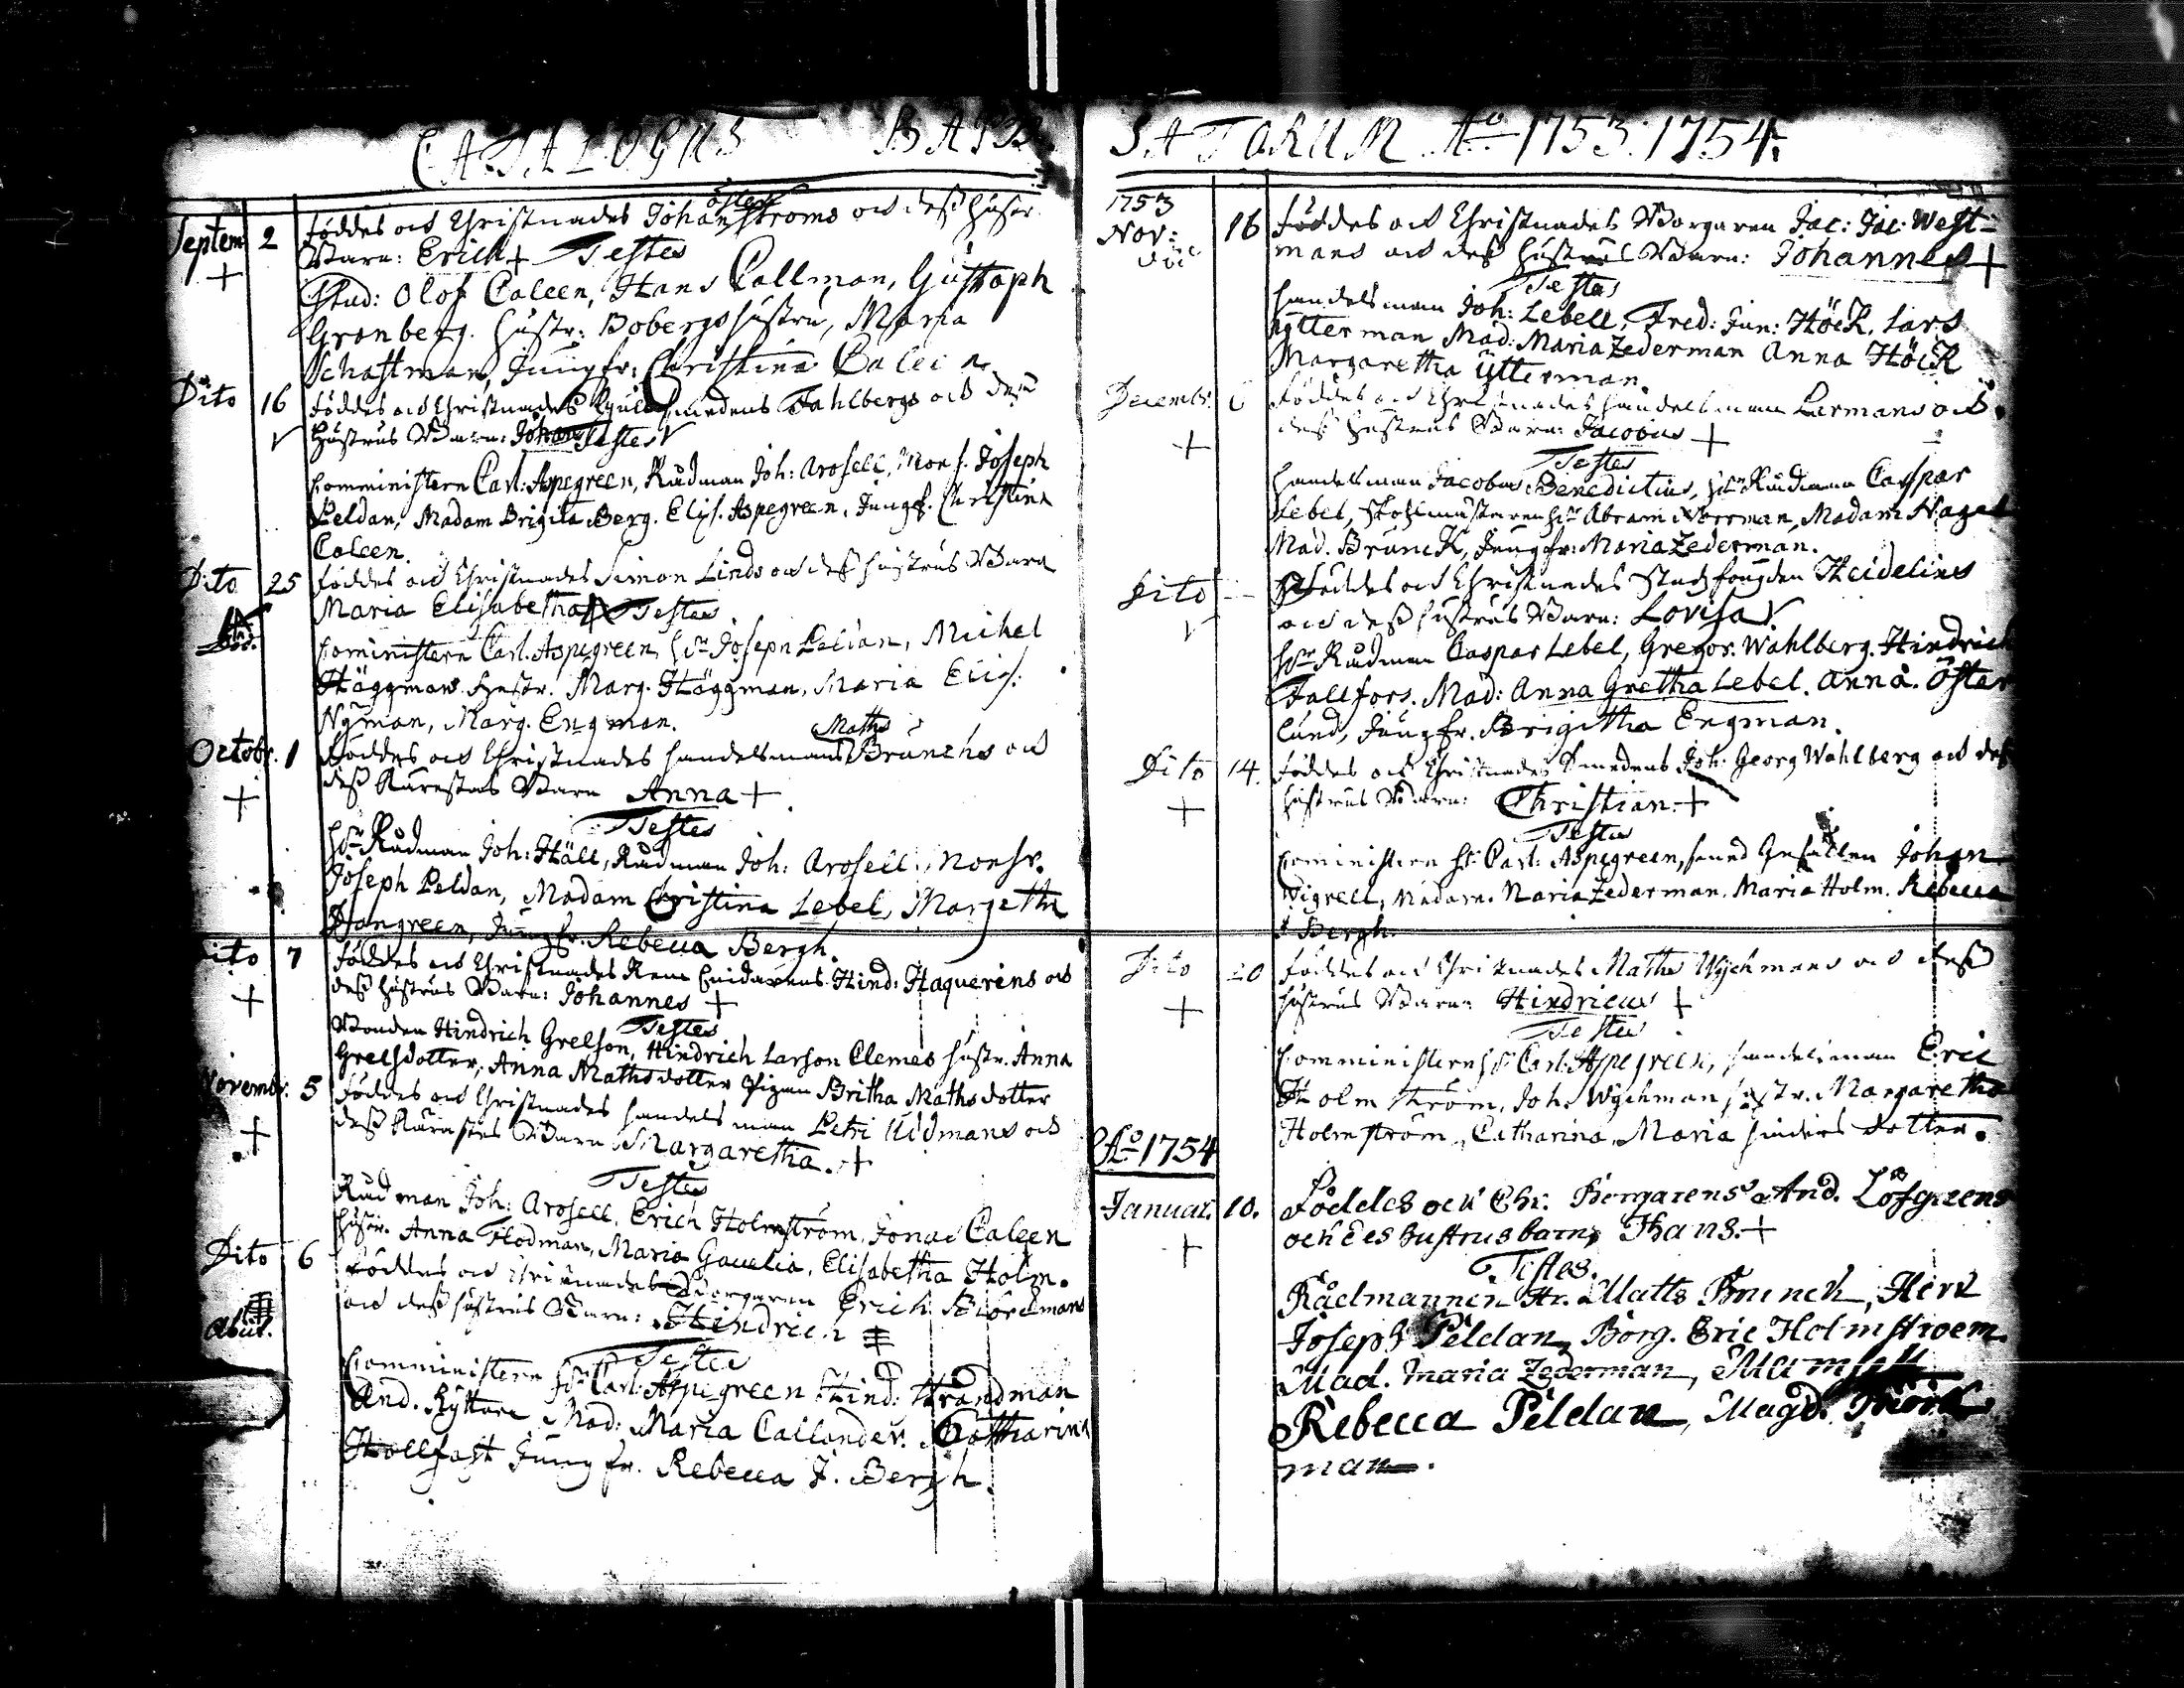 CATALOGUS BAPTI
Septem 2 föddes och Christnades Johan Österströms och deß hustr.
+ Barn: Erich + Testes
Stud: Olof Caleen, Hans Callman, Gustaph
Grönberg. hustr: Bobergs hustru, Maria
Schaftman, Jungfr: Christina Caleen
Dito 16 föddes och Christnades Guldsmedens Fahlbergs och deß
hustrus Barn: Johan Testes
Comministern Carl: Aspegreen, Rådman Joh: Arosell, Mons. Joseph
Peldan, Madam Brigita Berg. Elis. Aspegreen, Jungf. Christina
Caleen.
Dito 25 föddes och Christnades Simon Linds och deß hustrus Barn
Maria Elisabetha Testes
död. Comministern Carl. Aspegreen, Hr Joseph Peldan, Michel
Häggman hustr. Marg. Häggman, Maria Elis:
Nyman, Marg. Engman.
Octobr. 1 föddes och Christnades handelsmans Maths Brunchs och
deß Kärestas Barn Anna +
+ Testes
Hr Rådman Joh: Häll, Rådman Joh: Arosell, Monsr.
Joseph Peldan, Madam Christina Lebel, Margetha
Jungfr. Rebecca Bergh.
Dito 7 föddes och Christnades Hind: Haquerins och
+ deß hustrus Barn: Johannes +
Testes
Bonden Hindrich Grelson, Hindrich Larson Clemes hustr. Anna
Grelsdotter, Anna Mathsdotter Pigan Britha Mathsdotter
Novembr. 5 föddes och Christnades handelsman Petri Udmans och
+ deß Kärestas Barn Margaretha. +
Testes
Rådman Joh: Arosell, Erich Holmström, Jonas Caleen
hustr. Anna Flodman, Maria Gauelia, Elisabetha Holm.
Dito 6 föddes och Christnades Borgaren Erich Biörckmans
och deß hustrus Barn: Hindrich
obiit. Testes
Comministern Hr Carl: Aspegreen Hind: Strandman
And. Ryttare Mad: Maria Callander. Catharina
Hollfast Jungfr. Rebecca J. Bergh.
SATORUM Ao 1753. 1754.
1753
Nov: 16 föddes och Christnades Borgaren Jac: Jac: West-
mans och deß hustrus Barn: Johannes +
Testes
handelsman Joh: Lebell, Fred: Jun: Höck, Lars
Ytterman Mad: Maria Zederman Anna Höck
Margaretha Ytterman.
Decembr. 6 föddes och Christnades handelsman Larmans och
+ deß hustrus Barn: Jacobus +
Testes
handelsman Jacobus Benedictius, Hr Rådman Caspar
Lebel, Hr Abram Norrman, Madam Nagel
Mad. Brunck, Jungfr: Maria Zederman.
Dito föddes och Christnades Stadzfougden Heidelins
och deß hustrus Barn: Lovisa
Hr Rådman Caspar Lebel, Gregor. Wahlberg. Hindrich
Fallfors. Mad: Anna Gretha Lebel. Anna. Öster
lund, Jungfr. Brigitha Engman.
Dito 14. föddes och Christnades Smedens Joh. Georg Wahlberg och deß
+ hustrus Barn: Christian +
Testes
Comministern Hr Carl: Aspegreen, smed Gesällen Johan
Wigrell, Madam. Maria Zederman. Maria Holm. Rebecca
J Bergh.
Dito 20 föddes och Christnades Maths Wychmans och deß
+ hustrus Barn: Hindricus +
Testes
Comministern Hr Carl: Aspegreen, handelsman Eric
Holmström, Joh. Wychman, hustr. Margaretha
Holmström, Catharina, Maria hinders dotter.
Ao 1754
Januar. 10. Föddes och Chr. Borgarens And. Löfgrens
+ och des hustrus barn, Hans. +
Testes.
Rådmannen Hr. Matts Brunck, Herr
Joseph Peldan, Borg. Eric Holmstroem.
Mad. Maria Zederman, Mamsell
Rebecca Peldan, Magd.
man.